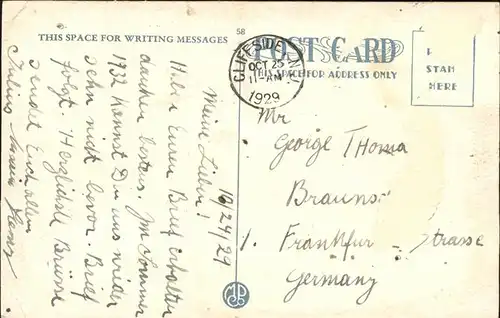 THIS SPACE FOR WRITING MESSAGES
58
POST CARD
THIS SPACE FOR ADDRESS ONLY
CLIFFSIDE, N.J.
OCT 25
11-AM
1929
STAMP
HERE
10/24/29
Meine Lieben!
Habe Euren Brief erhalten
danken bestens. Im Sommer
1932 kannst Du uns wieder
sehn nicht bevor. Brief
folgt. Herzlichste Grüsse
sendet Euch allen
Mr
George Thoma
Brauns
1. Frankfur - Strasse
Germany